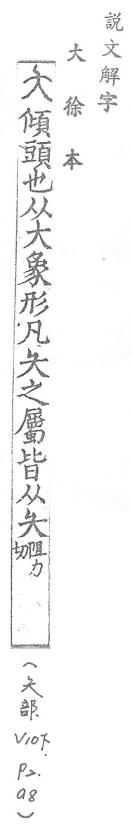 説文解字
大徐本
夨傾頭也从大象形凡夨之屬皆从夨阻力切
（夨部、V10下. P2. a8）